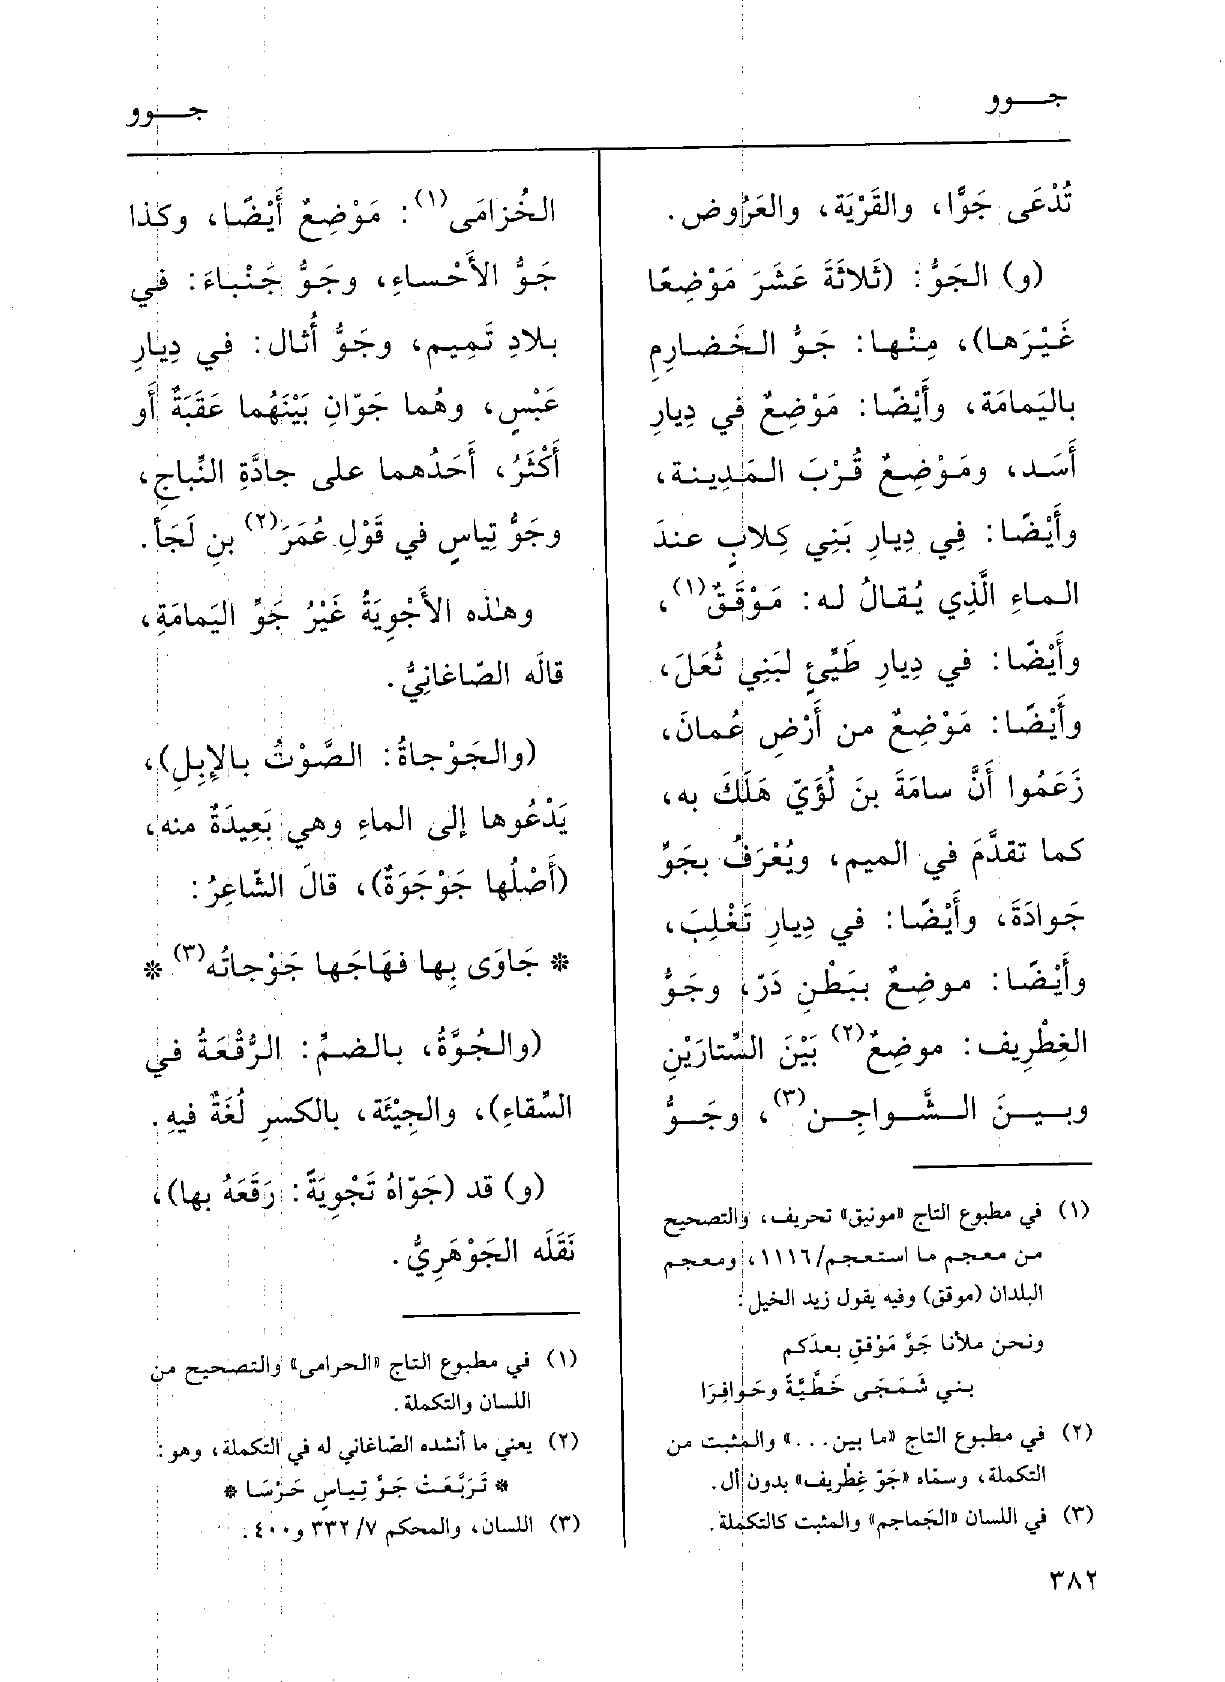 جــوو
جــوو
تُدْعَى جَوًّا، والقَرْيَة، والعَرُوض.
(و) الجَوُّ: (ثَلاثَةَ عَشَرَ مَوْضِعًا
غَيْرَها)، مِنْها: جَوُّ الخَضارِمِ
بالیَمامَة، وأَيْضًا: مَوْضِعٌ في دِيارِ
أَسَد، ومَوْضِعٌ قُرْبَ المَدِينة،
وأَيْضًا: فِي دِيارِ بَنِي كِلابٍ عندَ
الماءِ الَّذِي يُقالُ له: مَوْقَقٌ(١)،
وأَيْضًا: في دِيارِ طَيِّئٍ لبَنِي ثُعَلَ،
وأَيْضًا: مَوْضِعٌ من أَرْضِ عُمانَ،
زَعَمُوا أَنَّ سامَةَ بنَ لُؤَيّ هَلَكَ به،
كما تقدَّمَ في الميم، ويُعْرَفُ بجَوِّ
جَوادَةَ، وأَيْضًا: في دِيارِ تَغْلِبَ،
وأَيْضًا: موضِعٌ ببَطْنِ دَرّ، وجَوُّ
الغِطْرِيف: موضِعٌ(٢) بَيْنَ السِّتارَيْنِ
وبــيــنَ الــشَّــواجِــن(٣)، وجَــوُّ
(١) في مطبوع التاج «مونيق» تحريف، والتصحيح
من معجم ما استعجم/١١١٦، ومعجم
البلدان (موقق) وفيه يقول زيد الخيل:
ونحن ملأنا جَوَّ مَوْققِ بعدَكم
بني شَمَجَى خَطِّيَّةً وحَوافِرَا
(٢) في مطبوع التاج «ما بين...» والمثبت من
التكملة، وسمّاه «جَوّ غِطْريف» بدون أل.
(٣) في اللسان «الجَماجم» والمثبت كالتكملة.
الخُزامَى(١): مَوْضِعٌ أَيْضًا، وكذا
جَوُّ الأَحْساءِ، وجَوُّ جَنْباءَ: في
بلادِ تَمِيم، وجَوُّ أُثال: في دِيارِ
عَبْسٍ، وهُما جَوّانِ بَيْنَهُما عَقَبَةٌ أَو
أَكْثَرُ، أَحَدُهما على جادَّةِ النِّباجِ،
وجَوُّ تِياسٍ في قَوْلِ عُمَرَ(٢) بنِ لَجَأ.
وهٰذه الأَجْوِيَةُ غَيْرُ جَوِّ اليَمامَةِ،
قالَه الصّاغانِيُّ.
(والجَوْجاةُ: الصَّوْتُ بالإِبِلِ)،
يَدْعُوها إلى الماءِ وهي بَعِيدَةٌ منه،
(أَصْلُها جَوْجَوَةٌ)، قالَ الشّاعِرُ:
* جَاوَى بِها فهَاجَها جَوْجاتُه(٣) *
(والجُوَّةُ، بالضمِّ: الرُّقْعَةُ في
السِّقاءِ)، والجِيْئَة، بالكسرِ لُغَةٌ فيهِ.
(و) قد (جَوّاهُ تَجْوِيَةً: رَقَعَهُ بها)،
نَقَلَه الجَوْهَرِيُّ.
(١) في مطبوع التاج «الحرامى» والتصحيح من
اللسان والتكملة.
(٢) يعني ما أنشده الصّاغاني له في التكملة، وهو:
* تَرَبَّعَتْ جَوَّ تِياسٍ حَرْسَا *
(٣) اللسان، والمحكم ٧/ ٣٣٢ و٤٠٠.
٣٨٢